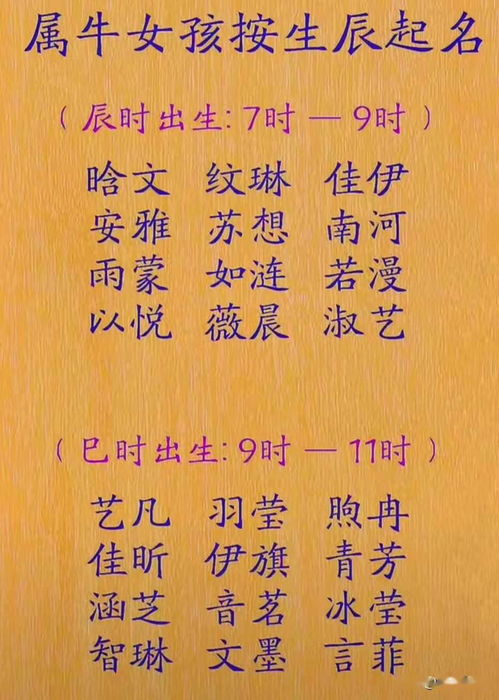 属牛女孩按生辰起名
（辰时出生:7时—9时）
晗文 纹琳 佳伊
安雅 苏想 南河
雨蒙 如涟 若漫
以悦 薇晨 淑艺
（巳时出生:9时—11时）
艺凡 羽莹 煦冉
佳昕 伊旗 青芳
涵芝 音茗 冰莹
智琳 文墨 言菲